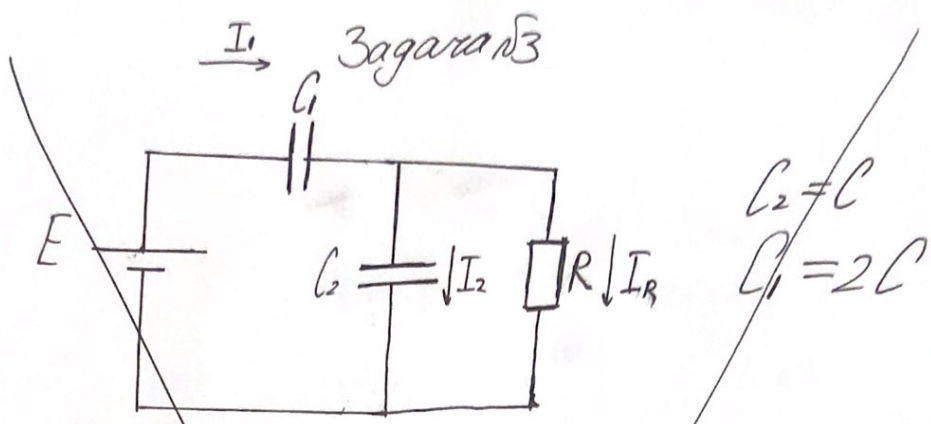 I₁ Задача №3
C₁
E
C₂
I₂
R
I_R
C₂ = C
C₁ = 2C